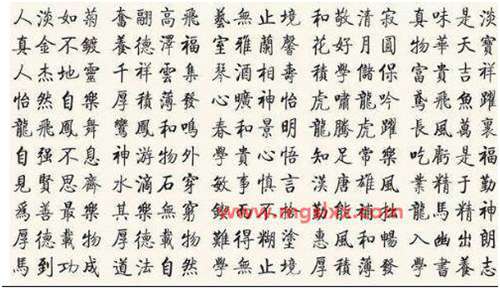 人淡如菊 奮翮高飛 藝無止境 和敬清寂 真味是淡
真金不鍍 養德澤福 室雅蘭馨 花好月圓 物華天寶
人杰地靈 千祥雲集 琴 相壽 學儲 富貴吉祥
怡然自樂 厚積薄發 心曠神怡 虎嘯龍吟 鳶飛魚躍
龍飛鳳舞 鸞鳳和鳴 春和景明 龍騰虎躍 長風萬裏
自强不息 神游物外 學貴心悟 知足常樂 吃虧是福
見賢思齊 水滴石穿 敏事慎言 漢唐雄風 業精于勤
爲善最樂 其樂無窮 龍馬精神
厚德載物 難得糊塗 惠風和暢 入幽出朗
馬到功成 道法自然 學無止境 厚積薄發 學書養志